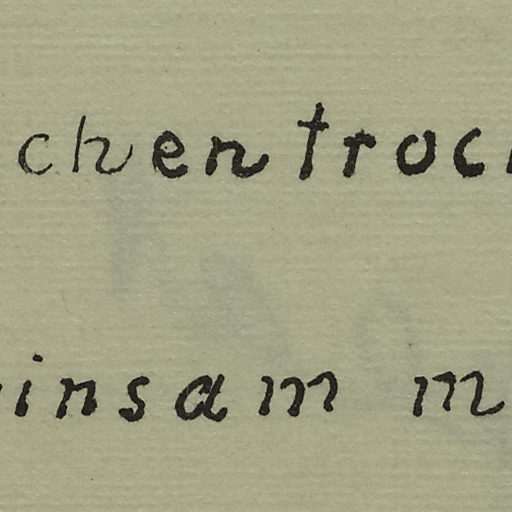 chen troc
insam m